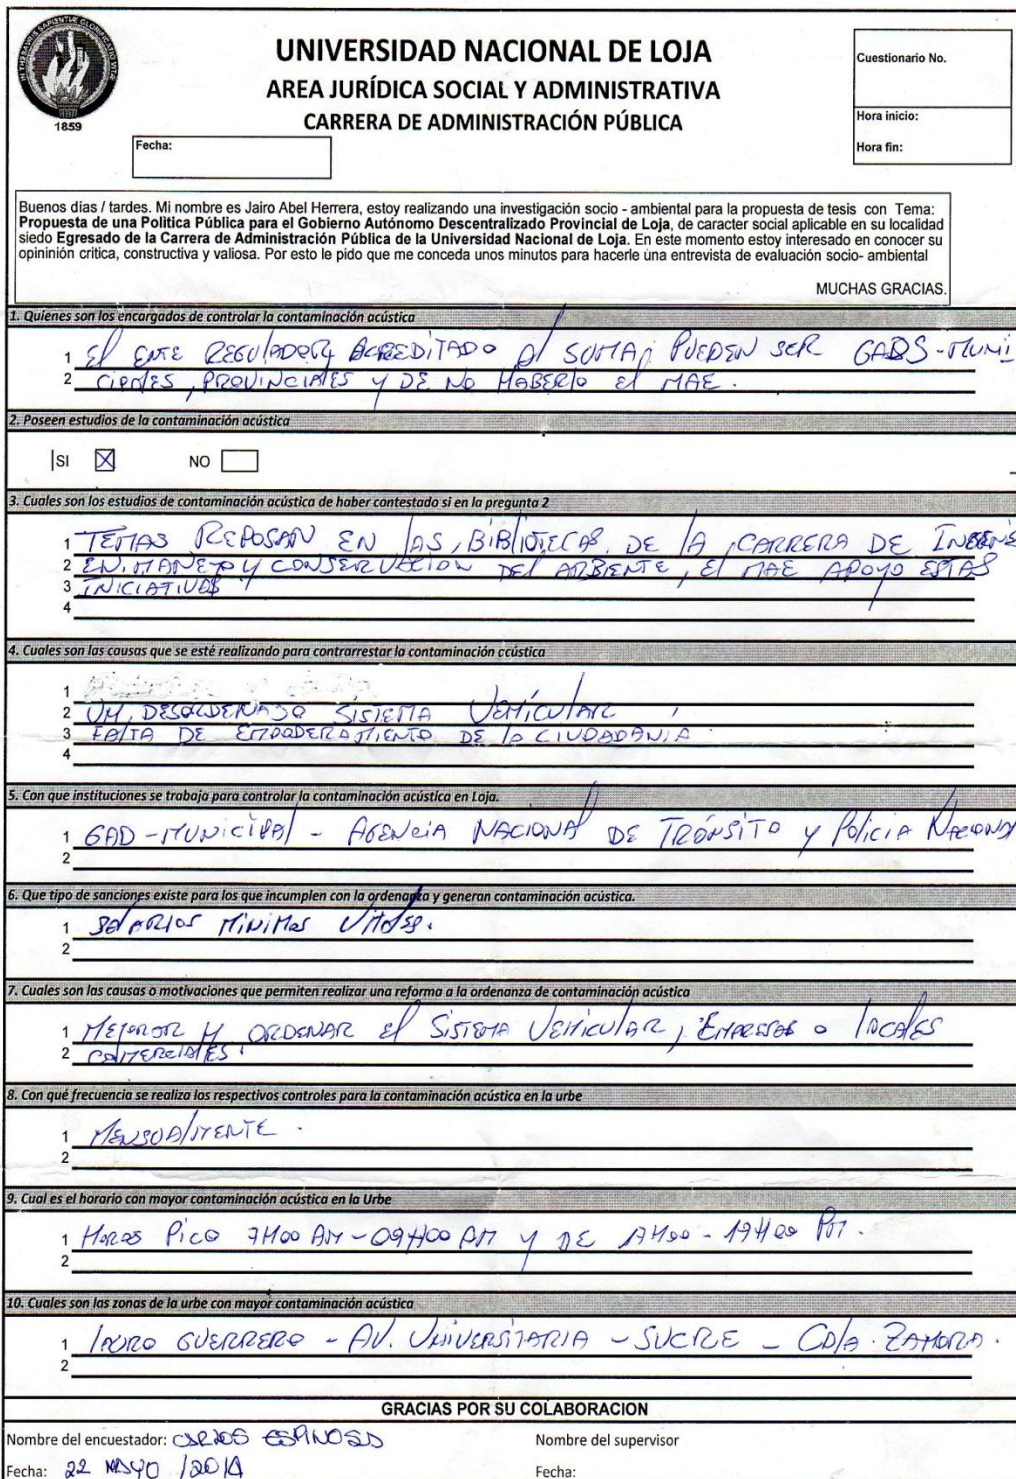 IN THESAURIS SAPIENTIAE GLORIFICATIO VITAE
1859
UNIVERSIDAD NACIONAL DE LOJA
AREA JURÍDICA SOCIAL Y ADMINISTRATIVA
CARRERA DE ADMINISTRACIÓN PÚBLICA
Cuestionario No.
Hora inicio:
Hora fin:
Fecha:
Buenos días / tardes. Mi nombre es Jairo Abel Herrera, estoy realizando una investigación socio - ambiental para la propuesta de tesis con Tema:
Propuesta de una Política Pública para el Gobierno Autónomo Descentralizado Provincial de Loja, de caracter social aplicable en su localidad
siedo Egresado de la Carrera de Administración Pública de la Universidad Nacional de Loja. En este momento estoy interesado en conocer su
opininión critica, constructiva y valiosa. Por esto le pido que me conceda unos minutos para hacerle una entrevista de evaluación socio- ambiental
MUCHAS GRACIAS.
1. Quienes son los encargados de controlar la contaminación acústica
1 El ENTE REGULADOR Y ACREDITADO Al SUMA, PUEDEN SER GADS-MUNI
2 CIPALES, PROVINCIALES Y DE NO HABERLO El MAE.
2. Poseen estudios de la contaminación acústica
SI ☒ NO ☐
3. Cuales son los estudios de contaminación acústica de haber contestado si en la pregunta 2
1 TEMAS REPOSAN EN LAS BIBLIOTECAS DE LA CARRERA DE INGENE
2 EN MANEJO Y CONSERVACION DEL AMBIENTE, El MAE APOYO ESTAS
3 INICIATIVAS
4
4. Cuales son las causas que se esté realizando para contrarrestar la contaminación ccústica
1
2 UN DESORDENADO SISTEMA VEHICULAR
3 FALTA DE EMPODERAMIENTO DE LA CIUDADANIA.
4
5. Con que instituciones se trabaja para controlar la contaminación acústica en Loja.
1 GAD-MUNICIPAL - AGENCIA NACIONAL DE TRÁNSITO Y POLICIA NACIONAL
2
6. Que tipo de sanciones existe para los que incumplen con la ordenanza y generan contaminación acústica.
1 SALARIOS MINIMOS VITALES.
2
7. Cuales son las causas o motivaciones que permiten realizar una reforma a la ordenanza de contaminación acústica
1 MEJORAR Y ORDENAR El SISTEMA VEHICULAR, EMPRESAS o LOCALES
2 COMERCIALES.
8. Con qué frecuencia se realiza los respectivos controles para la contaminación acústica en la urbe
1 MENSUALMENTE.
2
9. Cual es el horario con mayor contaminación acústica en la Urbe
1 HORAS PICO 7H00 AM-09H00 AM Y DE 17H00 - 19H00 PM.
2
10. Cuales son las zonas de la urbe con mayor contaminación acústica
1 LAURO GUERRERO - AV. UNIVERSITARIA - SUCRE - CDLA. ZAMORA.
2
GRACIAS POR SU COLABORACION
Nombre del encuestador: CARLOS ESPINOSA
Nombre del supervisor
Fecha: 22 MAYO /2014
Fecha: